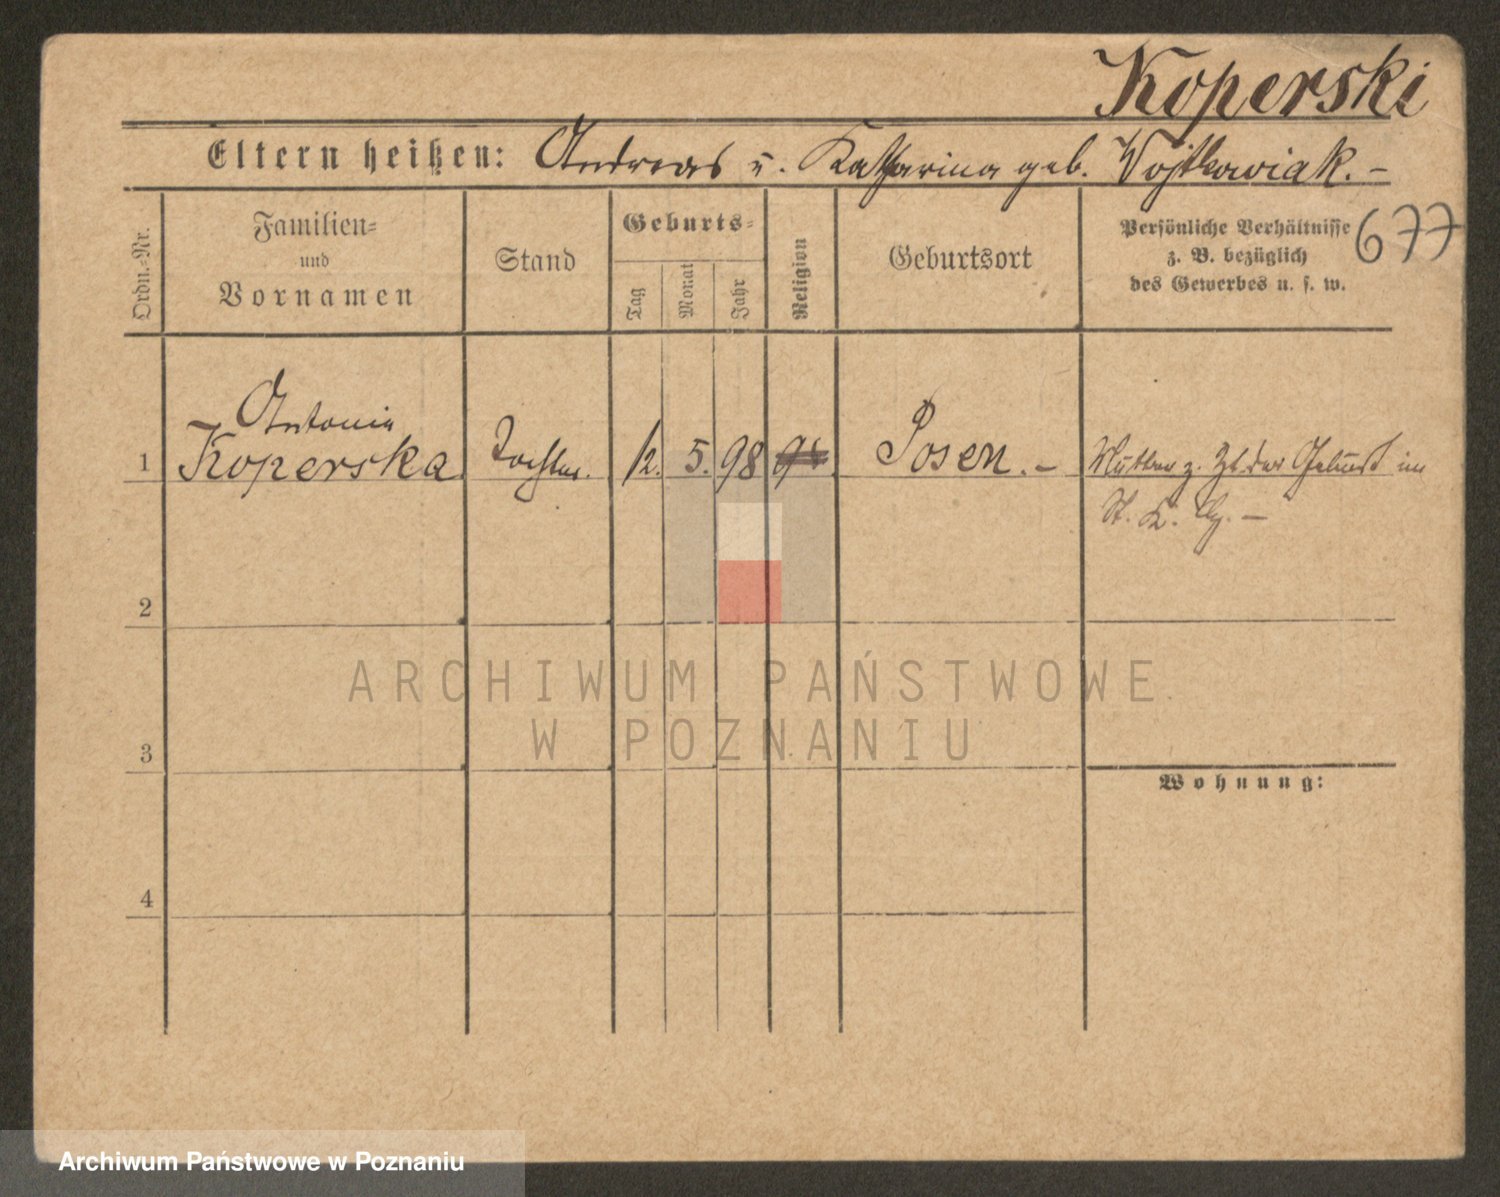 Koperski
Eltern heißen: Andreas u. Katharina geb. Wojtkowiak. –
Ordn.-Nr.
Familien-
und
Vornamen
Stand
Geburts-
Tag
Monat
Jahr
Religion
Geburtsort
Persönliche Verhältnisse
z. B. bezüglich
des Gewerbes u. s. w.
677
1
Antonia
Koperska
Tochter.
12.
5.
98
Posen. –
Mutter z. Zt. der Geburt im
St. K. –
2
3
4
Wohnung:
ARCHIWUM PAŃSTWOWE
W POZNANIU
Archiwum Państwowe w Poznaniu